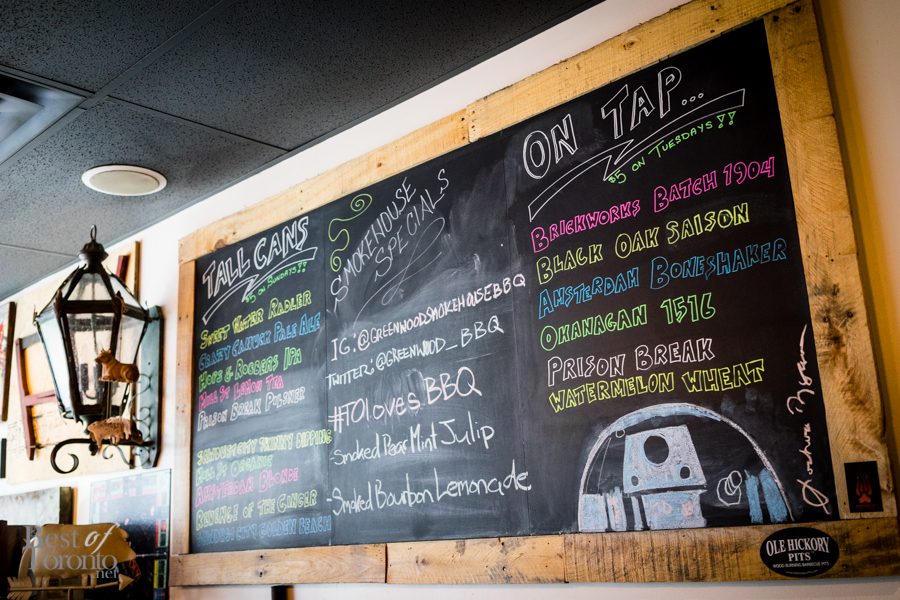 TALL CANS
$5 ON SUNDAYS!!
SWEET WATER RADLER
CRAZY CANUCK PALE ALE
HOPS & ROBBERS IPA
MILL ST LEMON TEA
PRISON BREAK PILSNER
SAWDUST CITY SKINNY DIPPING
MILL ST ORGANIC
AMSTERDAM BLONDE
REVENGE OF THE GINGER
SAWDUST CITY GOLDEN BEACH
SMOKEHOUSE
SPECIALS
IG: @GREENWOODSMOKEHOUSEBBQ
TWITTER: @GREENWOOD_BBQ
#TOlovesBBQ
Smoked Pear Mint Julip
-Smoked Bourbon Lemonade
ON TAP...
$5 ON TUESDAYS!!
BRICKWORKS BATCH 1904
BLACK OAK SAISON
AMSTERDAM BONESHAKER
OKANAGAN 1516
PRISON BREAK
WATERMELON WHEAT
OLE HICKORY
PITS
WOOD BURNING BARBECUE PITS
Best of
Toronto
.net